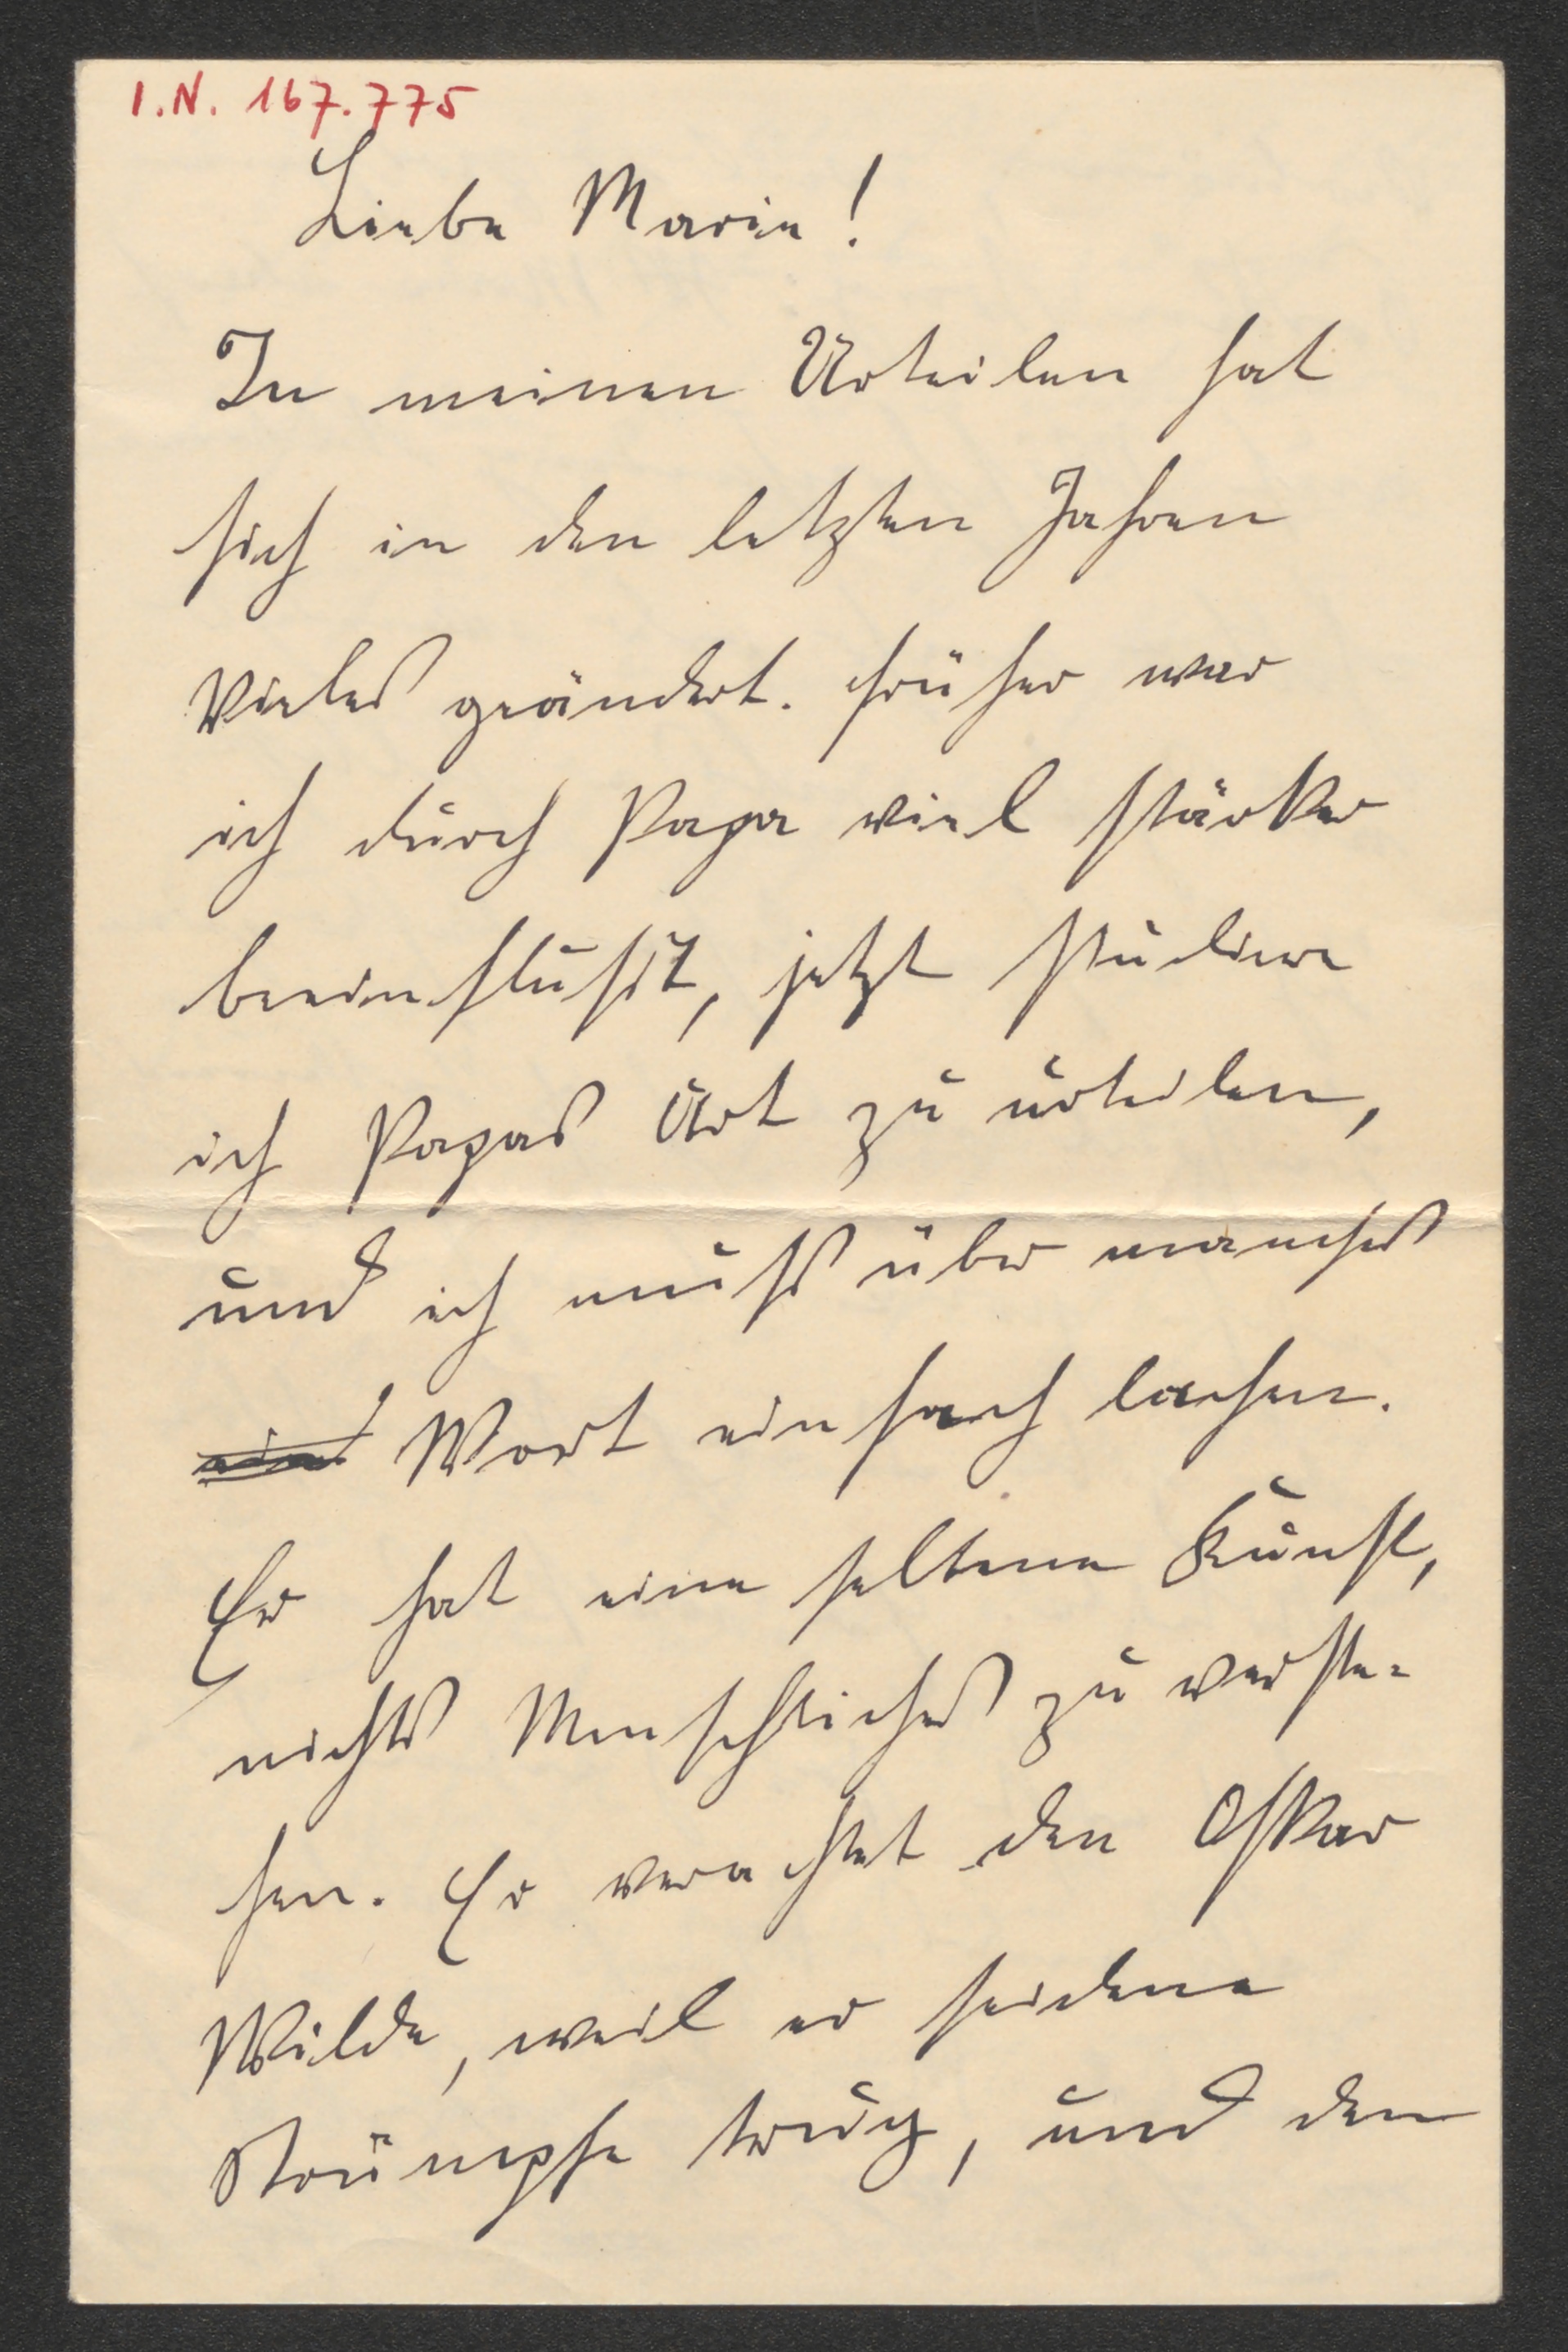 I.N. 167.775
Liebe Marie!
In meinen Urteilen hat
sich in den letzten Jahren
Vieles geändert. Früher war
ich durch Papa viel stärker
beeinflußt, jetzt studiere
ich Papas Art zu urteilen,
und ich muß über manches
ein Wort einfach lachen.
Er hat eine seltene Kunst,
nichts Menschliches zu verste-
hen. Er verachtet den Oskar
Wilde, weil er seidene
Strümpfe trug, und den